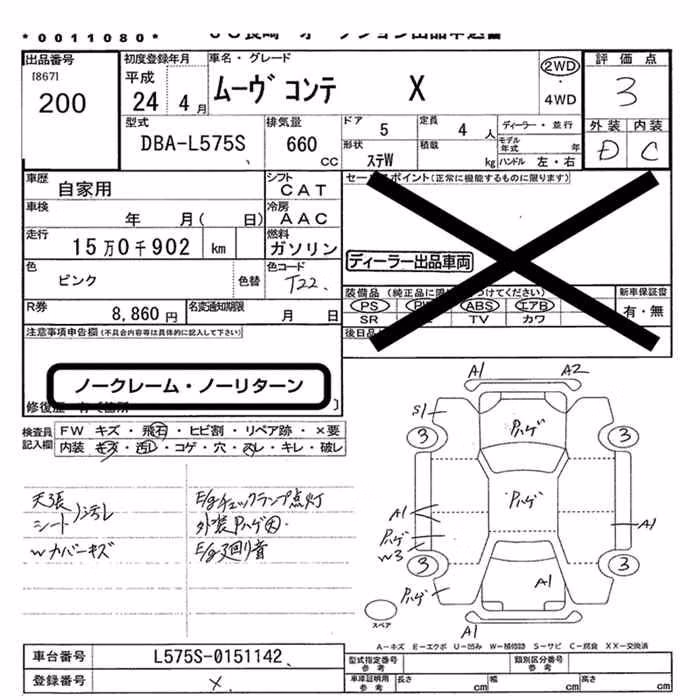 *0011080*
出品番号
[867]
200
初度登録年月
平成
24 4 月
車名・グレード
ムーヴ コンテ X
2WD
・
4WD
評価点
3
外装 内装
D C
型式
DBA-L575S
排気量
660
CC
ドア 5
定員 4 人
ディーラー・並行
モデル年式 年
形状
ステW
積載 kg
ハンドル 左・右
車歴
自家用
シフト
CAT
車検
年 月( 日)
冷房
AAC
走行
15万0千902 km
燃料
ガソリン
色
ピンク
色替
色コード
T22
R券
8,860 円
名変通知期限
月 日
セールスポイント(正常に機能するものに限ります)
ディーラー出品車両
装備品
PS ABS エアB
SR TV カワ
新車保証書
有・無
後日品
注意事項申告欄(不具合内容等は具体的に記入して下さい)
ノークレーム・ノーリターン
検査員
記入欄
FW キズ・飛石・ヒビ割・リペア跡・×要
内装 キズ・汚レ・コゲ・穴・スレ・キレ・破レ
天張
シート 汚レ
Wカバーキズ
E/gチェックランプ点灯
外装Pハゲ大
E/g廻り音
A1 A2
S1
3 3
Pハゲ
Pハゲ
A1
A1
Pハゲ
W3
3 3
Pハゲ
A1
A1
スペア
A-キズ E-エクボ U-凹み W-補修跡 S-サビ C-腐食 XX-交換済
車台番号
L575S-0151142
登録番号
×
型式指定番号
参考
類別区分番号
参考
車庫証明用
参考
長さ cm
幅 cm
高さ cm